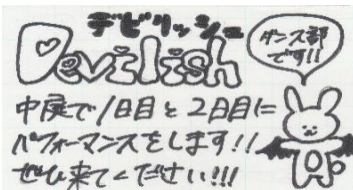 デビリッシュ
Devilish
ダンス部
です!!
中展で1日目と2日目に
パフォーマンスをします!!
ぜひ来てください!!!